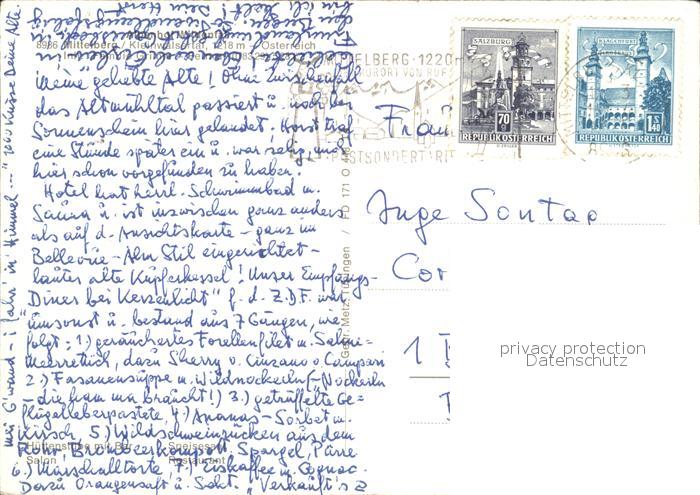 8986 Mittelberg / Kleinwalsertal, 1218 m – Österreich
meine geliebte Alte! Ohne Zwischenfall
das Altmühltal passiert u. noch bei
Sonnenschein hier gelandet, Horst traf
eine Stunde später ein u. war selig, mich
hier schon vorgefunden zu haben.
Hotel hat herrl. Schwimmbad u.
Sauna u. ist inzwischen ganz anders
als auf d. Ansichtskarte – ganz im
Bellevue-Alm Stil eingerichtet –
lauter alte Kupferkessel! Unser Empfangs-
Diner bei Kerzenlicht" f. d. Z.D.F. war
umsonst u. bestand aus 7 Gängen, wie
folgt: 1.) geräuchertes Forellenfilet m. Sahne-
meerrettich, dazu Sherry o. Cinzano o Campari
2.) Fasanensuppe m. Wildnockerln (– Nockerln
– die frau ma braucht!) 3.) getrüffelte Ge-
flügelleberpastete, 4.) Ananas-Sorbet m.
Kirsch, 5.) Wildschweinrücken aus dem
Rohr, Brombeerkompott, Spargel, Pürre
6.) Marschalltorte, 7.) Eiskaffee m. Cognac.
Dazu Orangensaft u. Sekt. „Verkauft's z
mei G'wand – i fahr' in Himmel ---" 1000 Küsse Deine Alte.
Hüttenstube mit Bar
Speisesaal
Salon
Restaurant
Gebr. Metz, Tübingen / FD 171 O
MITTELBERG · 1220m
POSTSONDERTARIF
SALZBURG
70
REPUBLIK ÖSTERREICH
KLAGENFURT
1 S 40
REPUBLIK ÖSTERREICH
Frau
Inge Sontag
Cor
1
privacy protection
Datenschutz